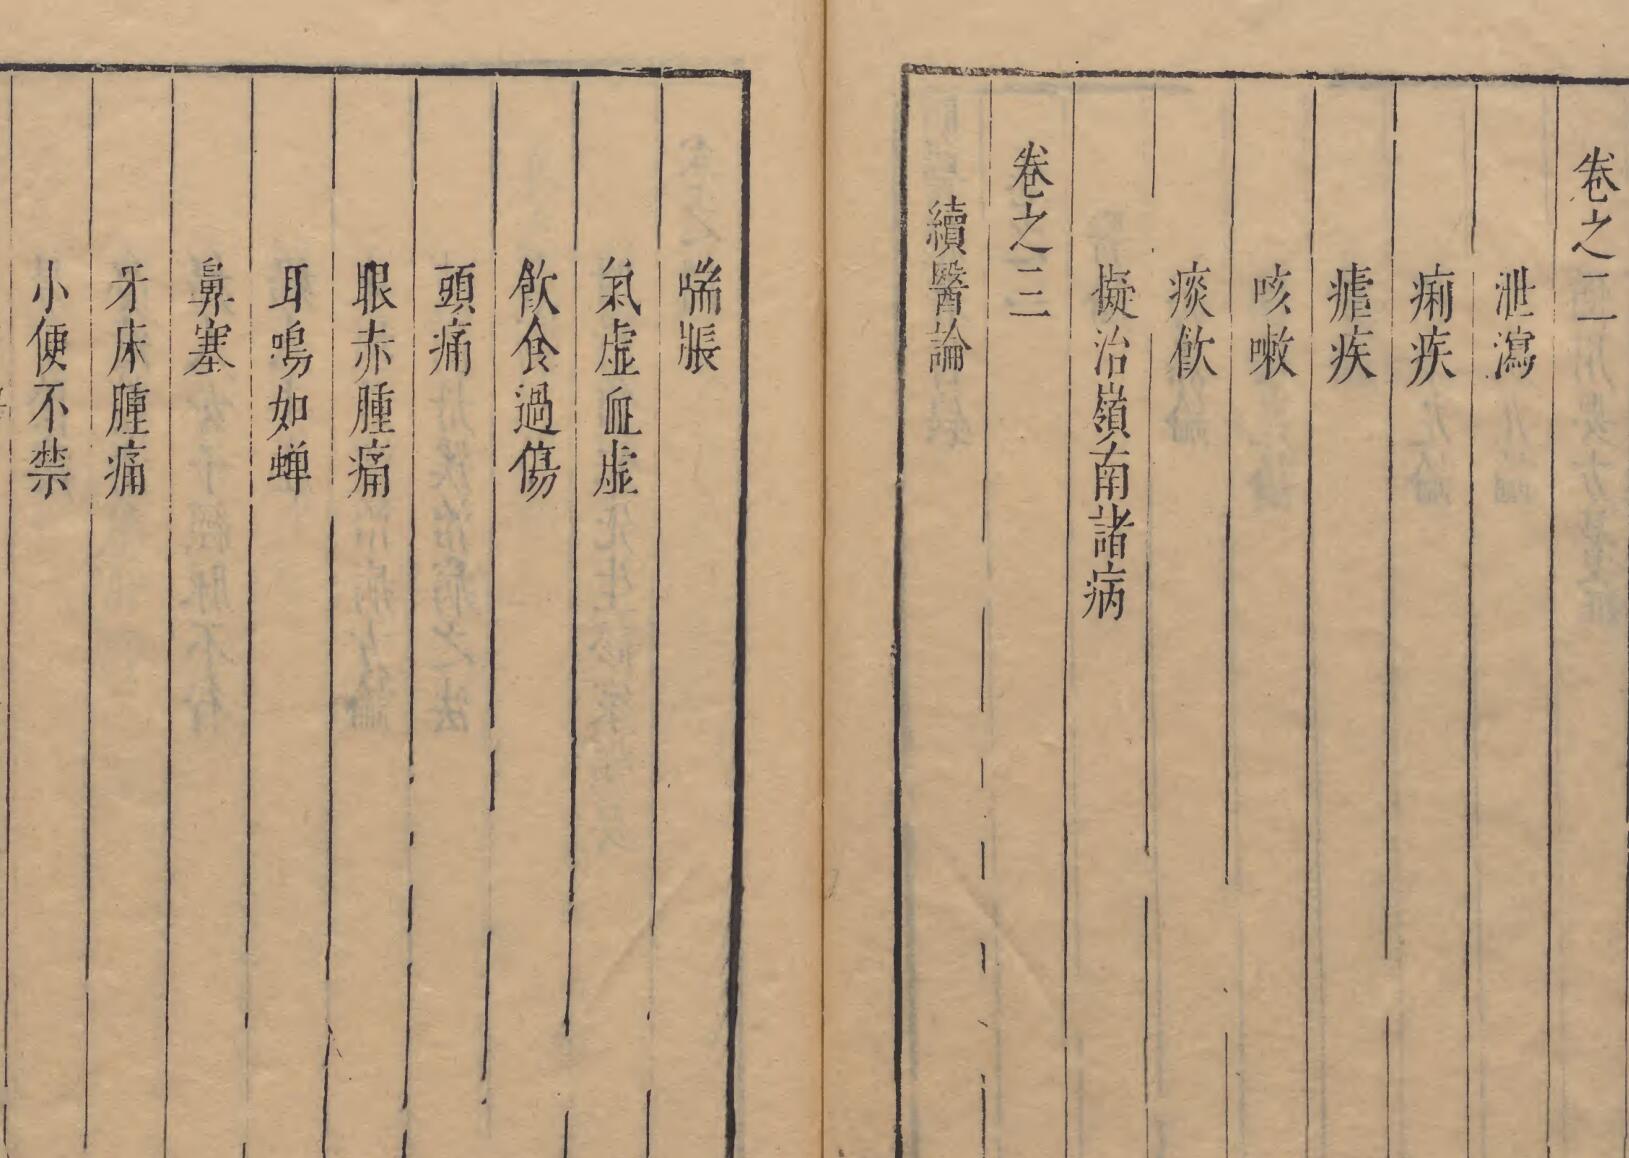 卷之二
泄瀉
痢疾
瘧疾
咳嗽
痰飲
擬治嶺南諸病
卷之三
續醫論
喘脹
氣虛血虛
飲食過傷
頭痛
眼赤腫痛
耳鳴如蟬
鼻塞
牙床腫痛
小便不禁